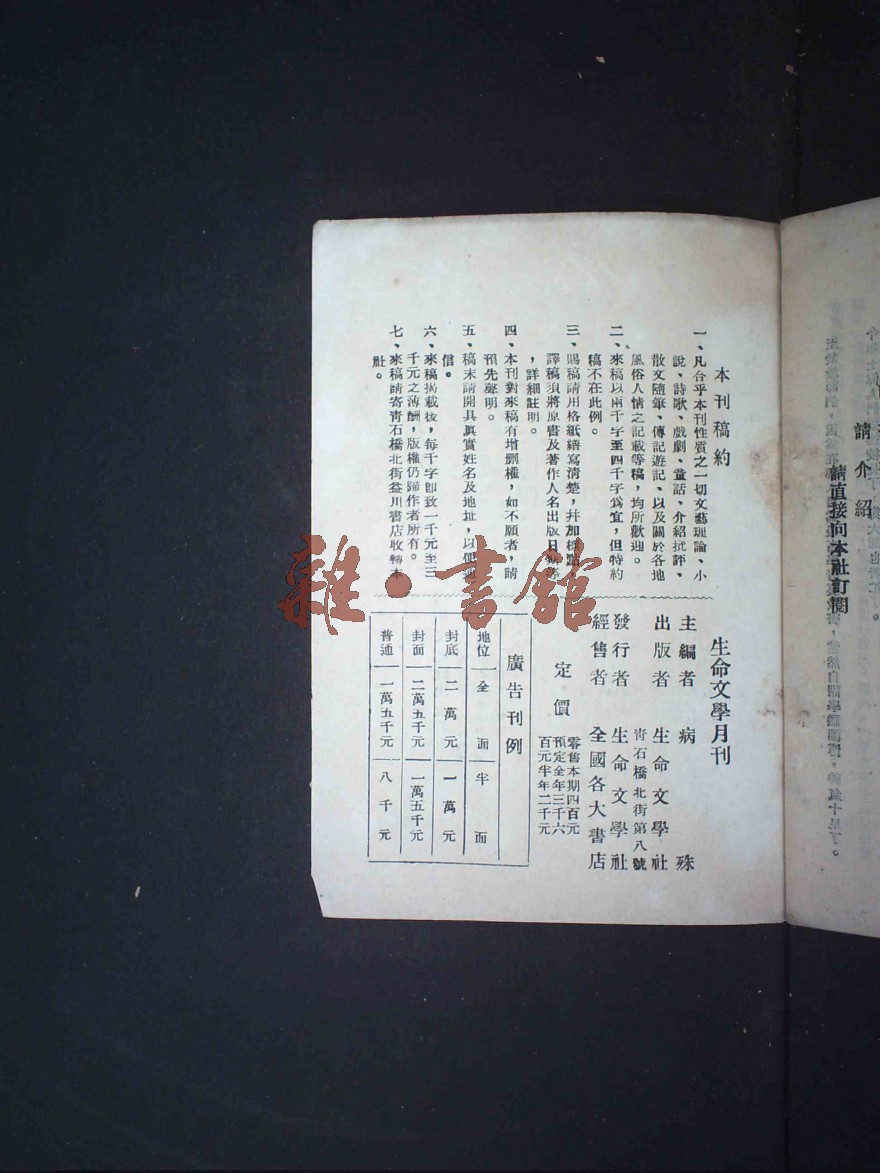 本刊稿約
一、凡合乎本刊性質之一切文藝理論、小
說、詩歌、戲劇、童話、介紹批評、
散文隨筆、傳記遊記、以及關於各地
風俗人情之記載等稿，均所歡迎。
二、來稿以兩千字至四千字爲宜，但特約
稿不在此例。
三、賜稿請用格紙繕寫清楚，幷加標點
譯稿須將原書及著作人名出版日期等
，詳細註明。
四、本刊對來稿有增删權，如不願者，請
預先聲明。
五、稿末請開具眞實姓名及地址，以便通
信。
六、來稿揭載後，每千字卽致一千元至三
千元之薄酬，版權仍歸作者所有。
七、來稿請寄靑石橋北街益川書店收轉本
社。
生命文學月刊
主編者 病 殊
出版者 生命文學社
靑石橋北街第八號
發行者 生命文學社
經售者 全國各大書店
定價
零售本期四百元
預定全年三千六
百元半年二千元
廣告刊例
地位 全面 半面
封底 二萬元 一萬元
封面 二萬五千元 一萬五千元
普通 一萬五千元 八千元
請介紹
請直接向本社訂閱
雜·書館